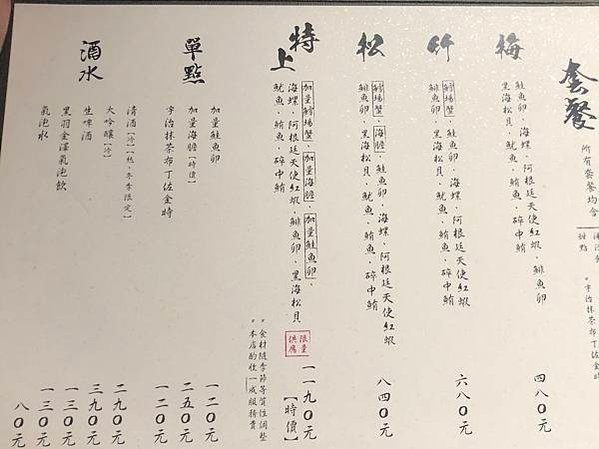 套餐
所有套餐均含
甜點
*宇治抹茶布丁佐金時
梅
鮭魚卵、海螺、阿根廷天使紅蝦、鯡魚卵、
黑海松貝、魷魚、鮪魚、碎中鮪
四八〇元
竹
鱈場蟹、鮭魚卵、海螺、阿根廷天使紅蝦
鯡魚卵、黑海松貝、魷魚、鮪魚、碎中鮪
六八〇元
松
鱈場蟹、海膽、鮭魚卵、海螺、阿根廷天使紅蝦
鯡魚卵、黑海松貝、魷魚、鮪魚、碎中鮪
八四〇元
特上
加量鱈場蟹、加量海膽、加量鮭魚卵、
海螺、阿根廷天使紅蝦、鯡魚卵、黑海松貝
魷魚、鮪魚、碎中鮪
限量供應
一一九〇元
【時價】
*食材隨季節等質性調整
*本店酌收一成服務費
單點
加量鮭魚卵
一二〇元
加量海膽【時價】
二五〇元
宇治抹茶布丁佐金時
一二〇元
酒水
清酒【冷】【熱,冬季限定】
二九〇元
大吟釀【冷】
三九〇元
生啤酒
一三〇元
黑羽金澤氣泡飲
一三〇元
氣泡水
八〇元